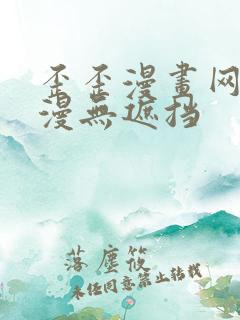 歪歪漫畫网
漫無遮挡
落塵筱
未经同意禁止转载